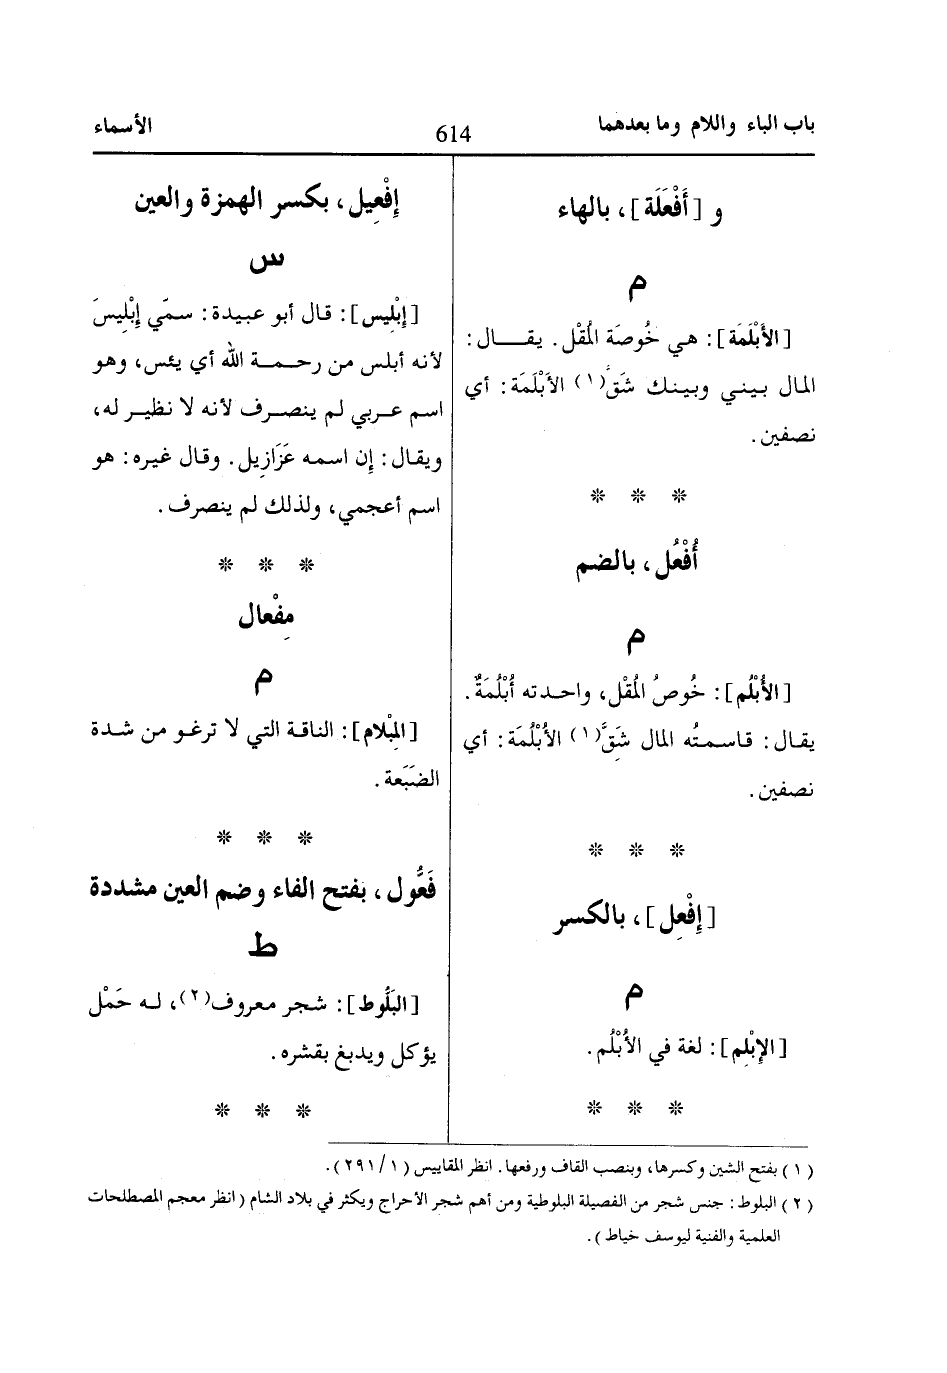 باب الباء واللام وما بعدهما
614
الأسماء
و [أَفْعَلَة]، بالهاء
م
[الأَبْلَمَة]: هي خُوصَة المُقْل. يقــال:
المال بيني وبينك شَقَ(١) الأَبْلَمَة: أي
نصفين.
* * *
أُفْعُل، بالضم
م
[الأُبْلُم]: خُوصُ المُقْل، واحدته أُبْلُمَةٌ.
يقال: قاسمتُه المال شَقَّ(١) الأُبْلُمَة: أي
نصفين.
* * *
[إِفْعِل]، بالكسر
م
[الإِبْلِم]: لغة في الأُبْلُم.
* * *
إِفْعِيل، بكسر الهمزة والعين
س
[إِبْلِيس]: قال أبو عبيدة: سمّي إِبْلِيسَ
لأنه أبلس من رحمــة الله أي يئس، وهو
اسم عربي لم ينصرف لأنه لا نظير له،
ويقال: إن اسمه عَزَازِيل. وقال غيره: هو
اسم أعجمي، ولذلك لم ينصرف.
* * *
مِفْعال
م
[المِبْلام]: الناقة التي لا ترغو من شدة
الضَبَعة.
* * *
فَعُّول، بفتح الفاء وضم العين مشددة
ط
[البَلُّوط]: شجر معروف(٢)، له حَمْل
يؤكل ويدبغ بقشره.
* * *
(١) بفتح الشين وكسرها، وبنصب القاف ورفعها. انظر المقاييس (١/ ٢٩١).
(٢) البلوط: جنس شجر من الفصيلة البلوطية ومن أهم شجر الأحراج ويكثر في بلاد الشام (انظر معجم المصطلحات
العلمية والفنية ليوسف خياط).